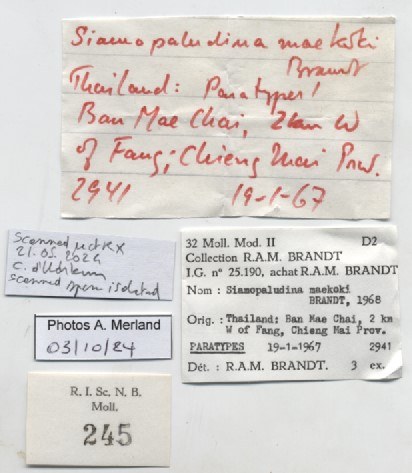 Siamopaludina maekoki
Brandt
Thailand: Paratypes!
Ban Mae Chai, 2 km W
of Fang; Chieng Mai Prov.
2941 19-1-67
Scanned
21.05.2024
scanned spm isolated
Photos A. Merland
03/10/24
R. I. Sc. N. B.
Moll.
245
32 Moll. Mod. II D2
Collection R.A.M. BRANDT
I.G. n° 25.190, achat R.A.M. BRANDT
Nom : Siamopaludina maekoki
BRANDT, 1968
Orig. : Thailand: Ban Mae Chai, 2 km
W of Fang, Chieng Mai Prov.
PARATYPES 19-1-1967 2941
Dét. : R.A.M. BRANDT. 3 ex.